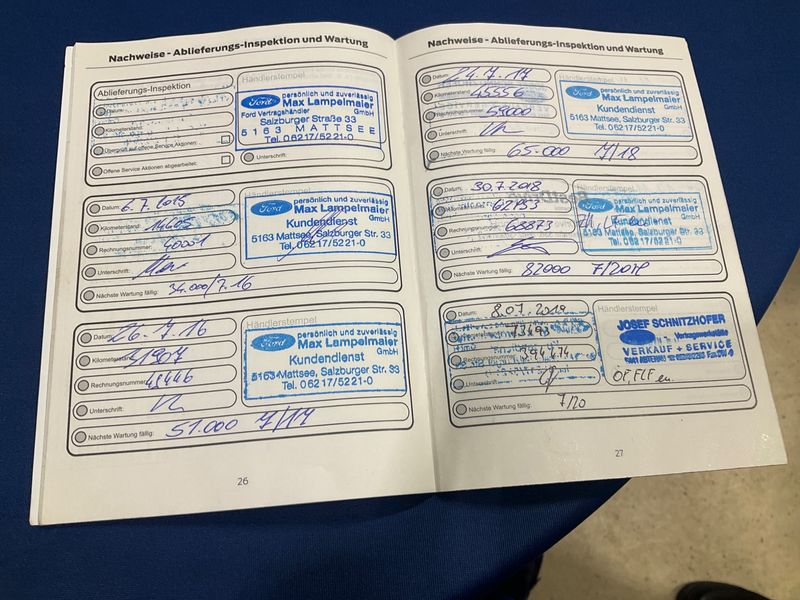 Nachweise - Ablieferungs-Inspektion und Wartung
Ablieferungs-Inspektion
Händlerstempel
Kilometerstand:
Überprüft auf offene Service Aktionen:
Offene Service Aktionen abgearbeitet:
Unterschrift:
Ford
persönlich und zuverlässig
Max Lampelmaier
GmbH
Ford Vertragshändler
Salzburger Straße 33
5163 MATTSEE
Tel. 06217/5221-0
Datum: 6.7.2015
Kilometerstand: 14605
Rechnungsnummer: 40051
Unterschrift:
Nächste Wartung fällig: 34.000/7.16
Händlerstempel
Ford
persönlich und zuverlässig
Max Lampelmaier
GmbH
Kundendienst
5163 Mattsee, Salzburger Str. 33
Tel. 06217/5221-0
Datum: 26.7.16
Kilometerstand: 31907
Rechnungsnummer: 48446
Unterschrift:
Nächste Wartung fällig: 51.000 7/17
Händlerstempel
Ford
persönlich und zuverlässig
Max Lampelmaier
GmbH
Kundendienst
5163 Mattsee, Salzburger Str. 33
Tel. 06217/5221-0
26
Nachweise - Ablieferungs-Inspektion und Wartung
Datum: 24.7.17
Kilometerstand: 45556
Rechnungsnummer: 59000
Unterschrift:
Nächste Wartung fällig: 65.000 7/18
Händlerstempel
Ford
persönlich und zuverlässig
Max Lampelmaier
GmbH
Kundendienst
5163 Mattsee, Salzburger Str. 33
Tel. 06217/5221-0
Datum: 30.7.2018
Kilometerstand: 62153
Rechnungsnummer: 68873
Unterschrift:
Nächste Wartung fällig: 82000 7/2019
Ford
persönlich und zuverlässig
Max Lampelmaier
GmbH
Kundendienst
5163 Mattsee, Salzburger Str. 33
Tel. 06217/5221-0
Datum: 8.07.2019
73493
Rechnungsnummer: 394474
Unterschrift:
Nächste Wartung fällig: 7/20
Händlerstempel
JOSEF SCHNITZHOFER
VERKAUF + SERVICE
ÖF, FLF en.
27